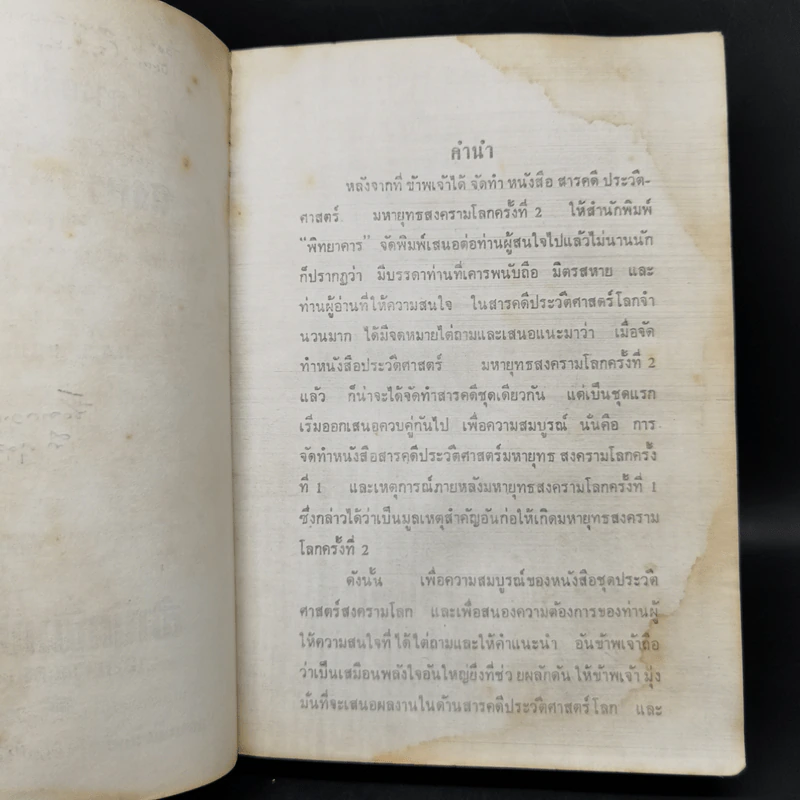 คำนำ
หลังจากที่ ข้าพเจ้าได้ จัดทำ หนังสือ สารคดี ประวัติ-
ศาสตร์ มหายุทธสงครามโลกครั้งที่ 2 ให้สำนักพิมพ์
“พิทยาคาร” จัดพิมพ์เสนอต่อท่านผู้สนใจไปแล้วไม่นานนัก
ก็ปรากฏว่า มีบรรดาท่านที่เคารพนับถือ มิตรสหาย และ
ท่านผู้อ่านที่ให้ความสนใจ ในสารคดีประวัติศาสตร์โลกจำ
นวนมาก ได้มีจดหมายไต่ถามและเสนอแนะมาว่า เมื่อจัด
ทำหนังสือประวัติศาสตร์ มหายุทธสงครามโลกครั้งที่ 2
แล้ว ก็น่าจะได้จัดทำสารคดีชุดเดียวกัน แต่เป็นชุดแรก
เริ่มออกเสนอควบคู่กันไป เพื่อความสมบูรณ์ นั่นคือ การ
จัดทำหนังสือสารคดีประวัติศาสตร์มหายุทธ สงครามโลกครั้ง
ที่ 1 และเหตุการณ์ภายหลังมหายุทธสงครามโลกครั้งที่ 1
ซึ่งกล่าวได้ว่าเป็นมูลเหตุสำคัญอันก่อให้เกิดมหายุทธสงคราม
โลกครั้งที่ 2
ดังนั้น เพื่อความสมบูรณ์ของหนังสือชุดประวัติ
ศาสตร์สงครามโลก และเพื่อสนองความต้องการของท่านผู้
ให้ความสนใจที่ ได้ไต่ถามและให้คำแนะนำ อันข้าพเจ้าถือ
ว่าเป็นเสมือนพลังใจอันใหญ่ยิ่งที่ช่วยผลักดัน ให้ข้าพเจ้า มุ่ง
มั่นที่จะเสนอผลงานในด้านสารคดีประวัติศาสตร์โลก และ